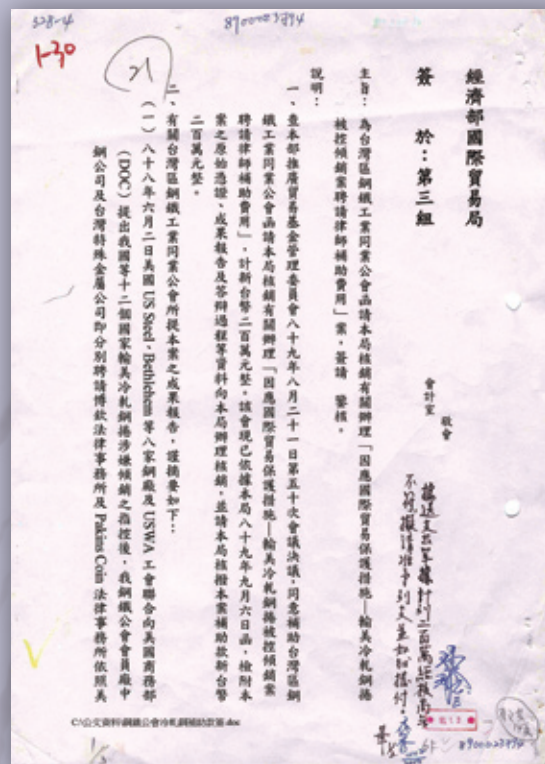 528-4
8900023794
1-30
21
經濟部國際貿易局
簽 於：第三組
會計室
敬會
主旨：為台灣區鋼鐵工業同業公會函請本局核銷有關辦理「因應國際貿易保護措施—輸美冷軋鋼捲
被控傾銷案聘請律師補助費用」案，簽請 鑒核。
說明：
一、查本部推廣貿易基金管理委員會八十九年八月二十一日第五十次會議決議，同意補助台灣區鋼
鐵工業同業公會函請本局核銷有關辦理「因應國際貿易保護措施—輸美冷軋鋼捲被控傾銷案
聘請律師補助費用」，計新台幣二百萬元整。該會現已依據本局八十九年九月六日函，檢附本
案之原始憑證、成果報告及答辯過程等資料向本局辦理核銷，並請本局核撥本案補助款新台幣
二百萬元整。
二、有關台灣區鋼鐵工業同業公會所提本案之成果報告，謹摘要如下：
（一）八十八年六月二日美國 US Steel、Bethlehem 等八家鋼廠及 USWA 工會聯合向美國商務部
（DOC）提出我國等十二個國家輸美冷軋鋼捲涉嫌傾銷之指控後，我鋼鐵公會會員廠中
鋼公司及台灣特殊金屬公司即分別聘請博欽法律事務所及 Pekins Coin 法律事務所依照美
C:\公文資料\鋼鐵公會冷軋鋼補助款簽.doc
8900023794